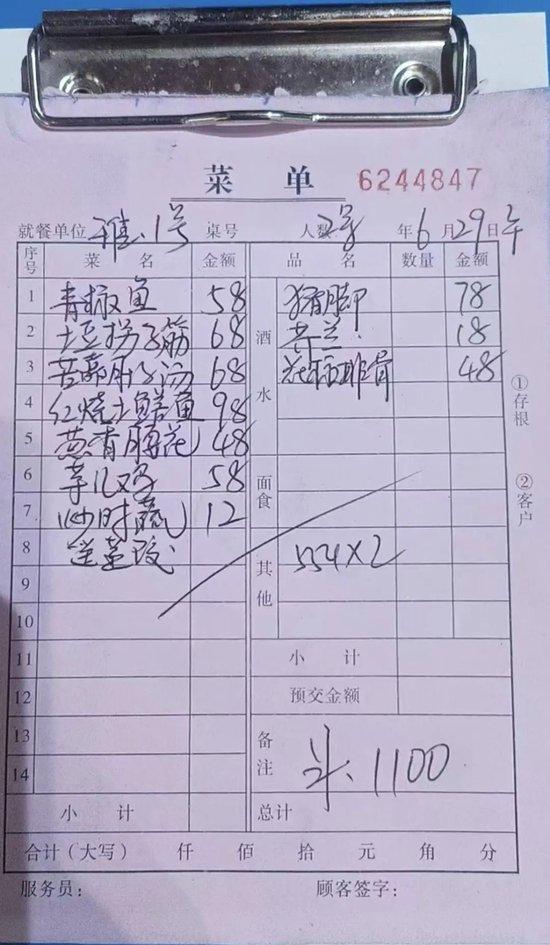 菜 单 6244847
就餐单位 雅.1号 桌号 人数 2号 年 6 月 29 日 午
序号 菜 名 金额 品 名 数量 金额
1 青椒鱼 58 猪脚 78
2 土豆拐子筋 68 酒水 18
3 68 排骨 48
4 红烧土鳝鱼 98
5 葱香腰花 48
6 58 面食
7 炒时蔬 12
8 其他 554×2
9
10
11 小 计
12 预交金额
13 备注 1100
14
小 计 总计
合计(大写) 仟 佰 拾 元 角 分
服务员: 顾客签字:
①存根
②客户